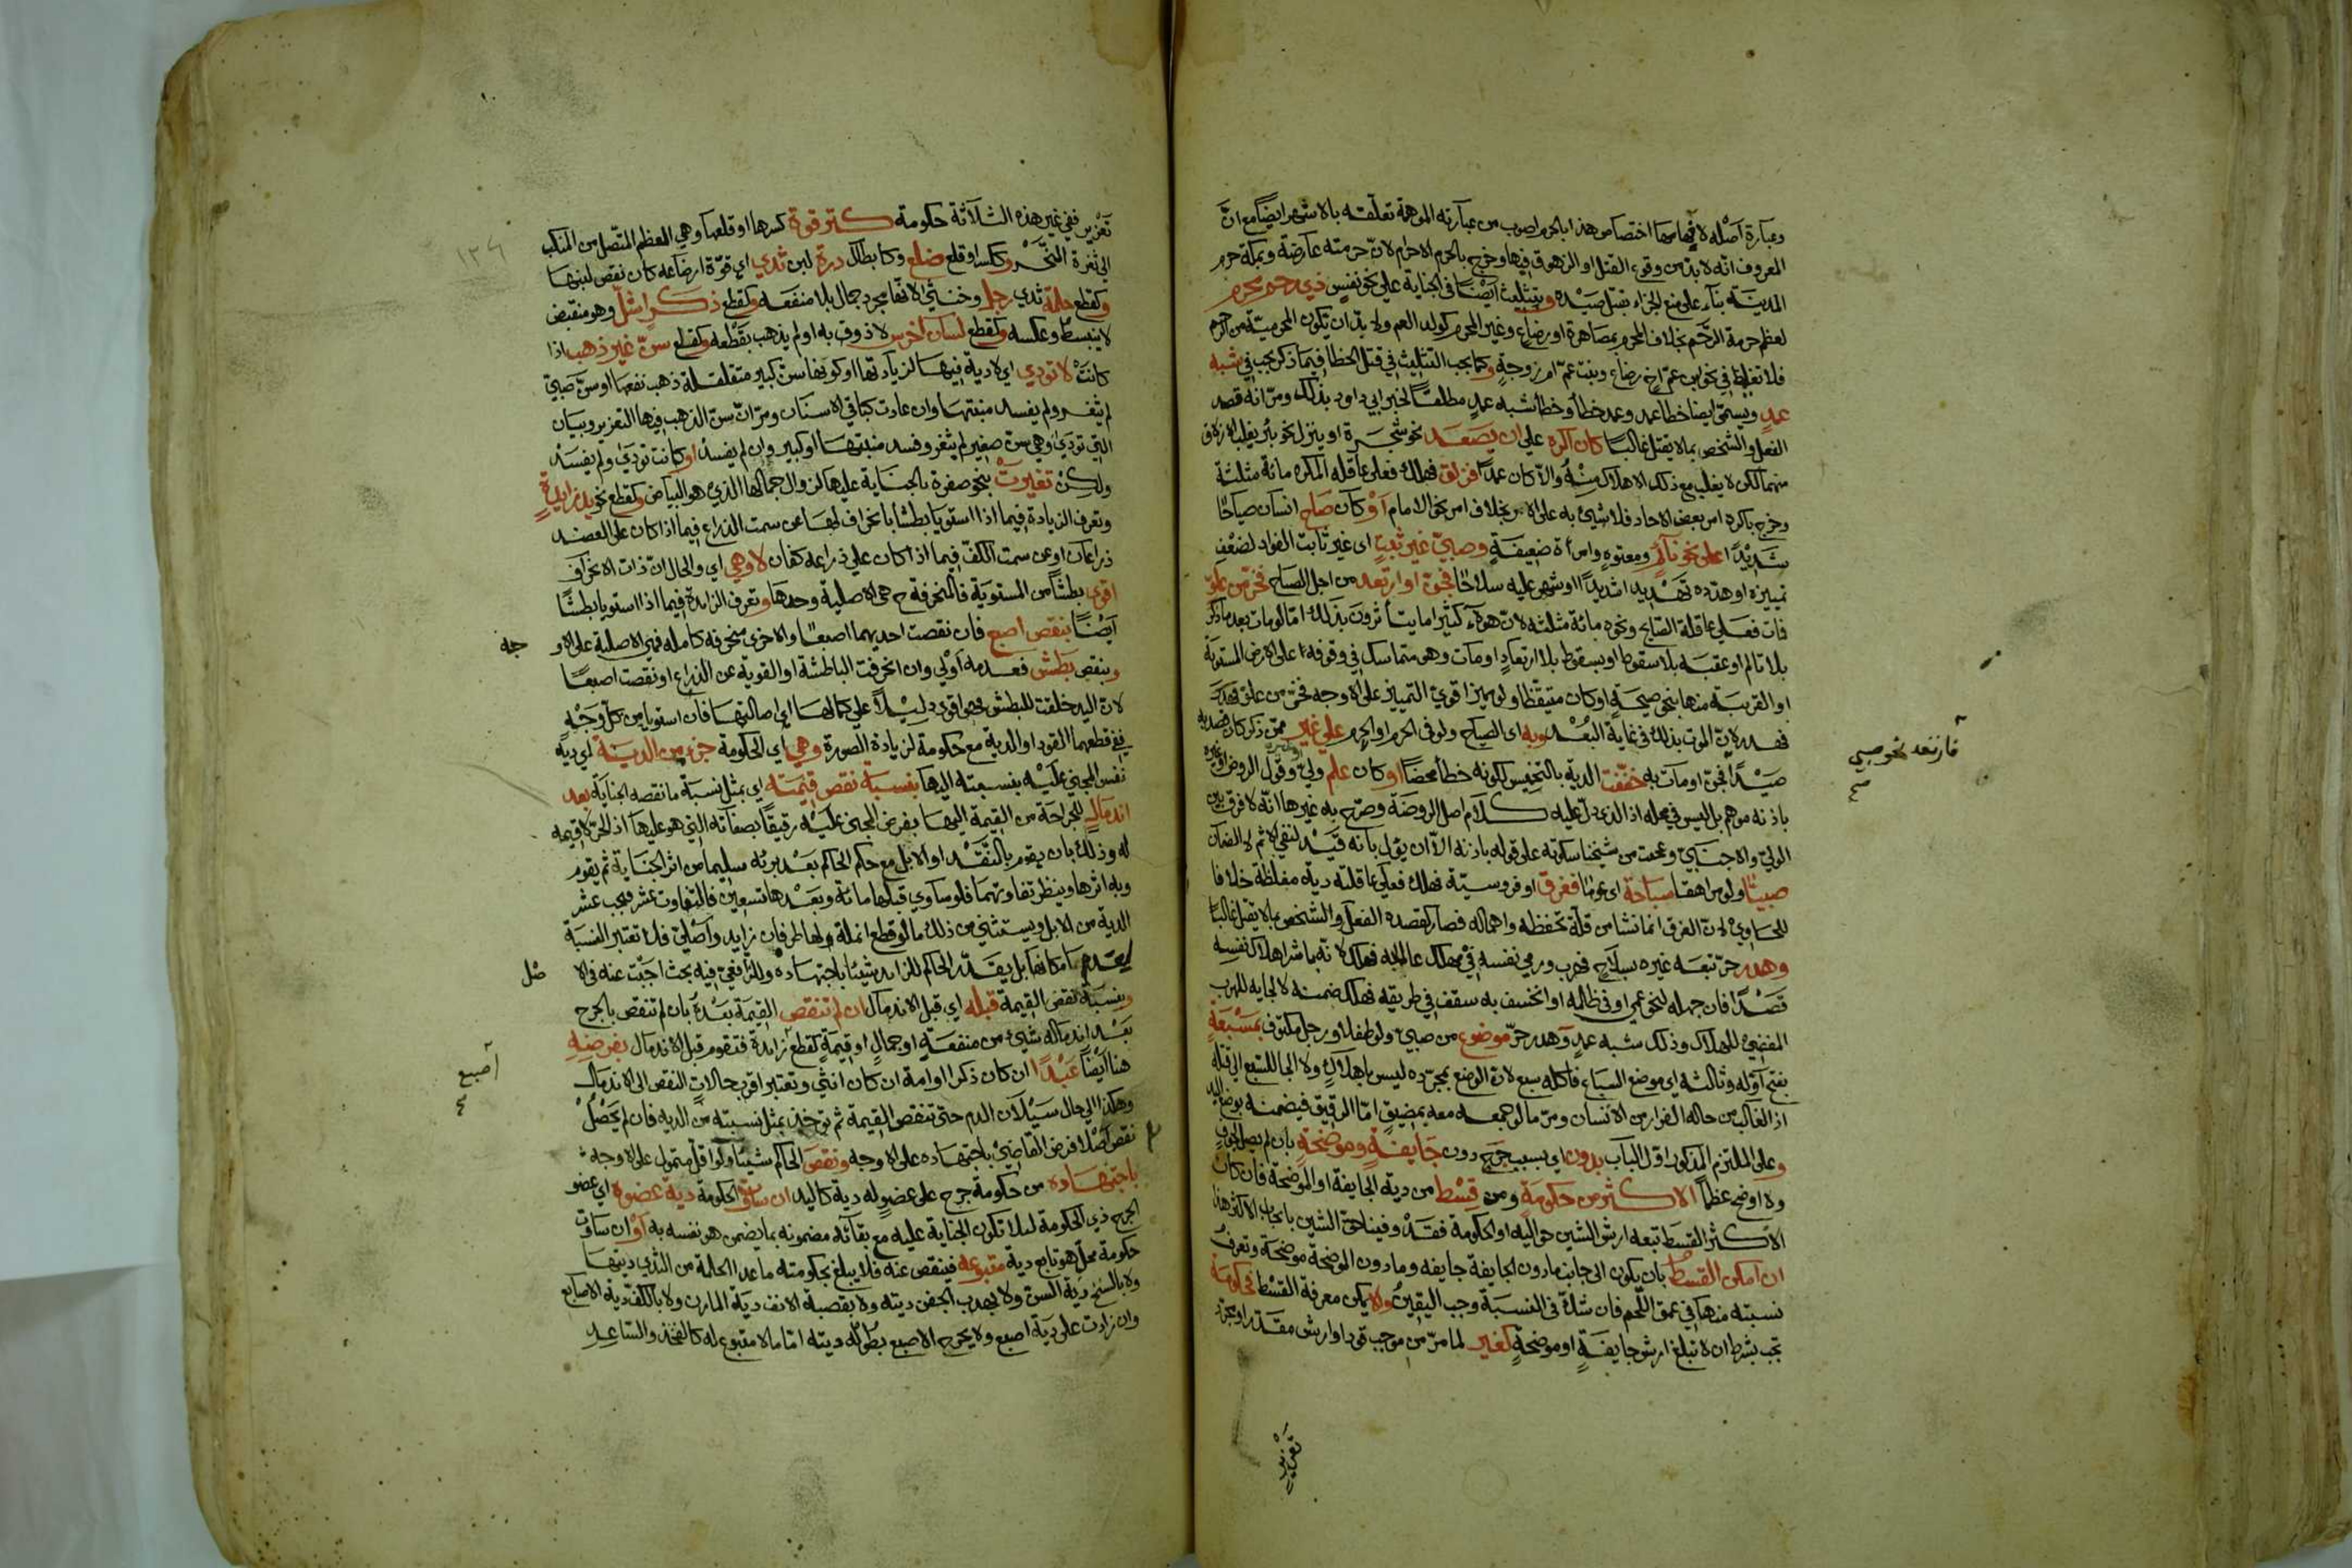 وعبارة اصله لا فيهما اختصاص هذا بالحرم اصوب من عبارته الموهمة تعلقه بالاشهر ايضا مع ان
المعروف انه لا بد من وقوع القتل او الزهوق فيها وخرج بالحرم الاحرام لان حرمته عارضة وبمكة حرم
المدينة بناء على منع الجزاء بقتل صيده ويتثلث ايضا في الجناية على نحو نفس ذي رحم محرم
لعظم حرمة الرحم بخلاف المحرم بمصاهرة او رضاع وغير المحرم كولد العم ولا بد ان تكون المحرمية من الرحم
فلا تغليظ في نحو ابن عم اخ رضاع وبنت عم ام زوجة وكما يجب التثليث في قتل الخطا فيما ذكر يجب في شبه
عمد ويسمى ايضا خطا عمد وعمد خطا وخطا شبه عمد مطلقا لخبر ابي داود بذلك ومر انه قصد
الفعل والشخص بما لا يقتل غالبا كان اكره على ان يصعد نحو شجرة او ينزل نحو بئر يغلب الازلاق
منهما لكن لا يغلب مع ذلك الاهلاك منه والا كان عمدا فزلق فهلك فعلى عاقلة المكره مائة مثلثة
وخرج باكره امر بعض الاحاد فلا شيء به على الامر بخلاف امر نحو الامام او كان صاح انسان صياحا
شديدا على نحو نائم ومعتوه وامراة ضعيفة وصبي غير ثبت اى غير ثابت الفواد لضعف
تمييزه او هدده تهديدا شديدا او شهر عليه سلاحا فجن او ارتعد من اجل الصياح فخر من علو
فمات فعلى عاقلة الصايح ونحوه مائة مثلثة لان هولاء كثيرا ما يتاثرون بذلك اما لو مات بعد ما ذكر
بلا تالم او عقبه بلا سقوط او بسقوط بلا ارتعاد او مات وهو متماسك في وقوفه على الارض المستوية
او القريبة منها بنحو صيحة او كان متيقظا ولو مميزا قوي التمييز على الاوجه فخر من علو فهلك
فهدر لان الموت بذلك في غاية البعد وبه اى الصياح ولو في الحرم او لحرم على غير ممن ذكر كان قصد به
صيدا فجن او مات به خففت الدية بالتخميس لكونه خطا محضا او كان علم ولي وقول الروض او غيره
باذنه موهم بل ليس في محله اذ الذي دل عليه كلام اصل الروضة وصرح به غيرها انه لا فرق بين
الولي والاجنبي وعجبت من شيخنا سكوته على قوله باذنه الا ان يقول بانه قيد لنفي الاثم لا الضمان
صبيا ولو مراهقا سباحة اى عوما فغرق او فروسية فهلك فعلى عاقلته دية مغلظة خلافا
للحاوي لان الغرق انما نشا من قلة تحفظه واهماله فصار كقصد الفعل والشخص بما لا يقتل غالبا
وهدر حر تبعه غيره بسلاح فهرب ورمى نفسه في مهلك عالما به فهلك لانه باشر اهلاك نفسه
قصدا فان جهله لنحو عمى او في ظلمة او انخسف به سقف في طريقه فهلك ضمنه لالجايه للهرب
المفضي للهلاك وذلك شبه عمد وهدر حر موضوع من صبي ولو طفلا ورجل مكتوف بمسبعة
بفتح اوله وثالثه اى موضع السباع فاكله سبع لان الوضع بمجرده ليس باهلاك ولا الجا للسبع الى قتله
اذ الغالب من حاله الفرار من الانسان ومر ما لو جمعه معه بمضيق اما الرقيق فيضمنه بوضع اليد
وعلى الملتزم المذكور اول الباب بدون اى بسبب جرح دون جايفة وموضحة بان لم يصل الجوف
ولا اوضح عظما الاكثر من حكومة ومن قسط من دية الجايفة او الموضحة فان كان
الاكثر القسط تبعه ارش الشين حواليه او الحكومة فقد وفينا حق الشين بايجاب الاكثر هنا
ان امكن القسط بان يكون الى جانب ما دون الجايفة جايفة وما دون الموضحة موضحة وتعرف
نسبته منهما في عمق اللحم فان شك في النسبة وجب اليقين والا يمكن معرفة القسط فحكومة
تجب بشرط ان لا تبلغ ارش جايفة او موضحة كغير لما مر من موجب قود او ارش مقدر او مجرد
تعزير
فارتعد نحو صبي
صح
تعزير ففي غير هذه الثلاثة حكومة كترقوة كسرها او قلعها وهي العظم المتصل من المنكب
الى ثغرة النحر وكسر او قلع ضلع وكابطال درة لبن ثدي اى قوة ارضاعه كان نقص لبنها
وكقطع حلمة ثدي رجل وخنثى لانها مجرد جمال بلا منفعة وكقطع ذكر اشل وهو منقبض
لا ينبسط وعكسه وكقطع لسان اخرس لا ذوق به او لم يذهب بقطعه وكقطع سن غير ذهب اذا
كانت لا تودي اي لا دية فيها لزيادتها او كونها سن كبير متقلقلة ذهب نفعها او سن صبي
لم يثغر ولم يفسد منبتها وان عادت كباقي الاسنان ومر ان سن الذهب فيها التعزير وبيان
التي تودى وهي سن صغير لم يثغر وفسد منبتها او كبير وان لم يفسد او كانت تودى ولم يفسد
ولكن تغيرت بنحو صفرة بالجناية عليها لزوال جمالها الذي هو البياض وكقطع نحو يد زايدة
وتعرف الزيادة فيما اذا استويا بطشا بانحرافها عن سمت الذراع فيما اذا كان على العضد
ذراعان او عن سمت الكف فيما اذا كان على ذراعه كفان لا وهي اي والحال ان ذات الانحراف
اقوى بطشا من المستوية فالمنحرفة ح هي الاصلية وحدها وتعرف الزايدة فيما اذا استويا بطشا
ايضا بنقص اصبع فان نقصت احديهما اصبعا والاخرى منحرفه كامله فهي الاصلية على الاو
جه
وبنقص بطش فعدمه اولى وان انحرفت الباطشة او القوية عن الذراع او نقصت اصبعا
لان اليد خلقت للبطش فهو اقوى دليلا على كمالها اى اصالتها فان استويا من كل وجه
ففي قطعهما القود او الدية مع حكومة لزيادة الصورة وهي اى الحكومة جزء من الدية اى دية
نفس المجني عليه بنسبته اليها بنسبة نقص قيمته اى بمثل نسبة ما نقصه الجناية بعد
اندمال للجراحة من القيمة اليها بفرض المجنى عليه رقيقا بصفاته التي هو عليها اذ الحر لا قيمة
له وذلك بان يقوم بالنقد او الابل مع حكم الحاكم بعد برئه سليما من اثر الجناية ثم يقوم
وبه اثرها وينظر تفاوتهما فلو ساوى قبلها مائة وبعدها تسعين فالتفاوت عشر فيجب عشر
الدية من الابل ويستثنى من ذلك ما لو قطع انملة ولها طرفان زايد واصلي فلا تعتبر النسبة
لعدم امكانها بل يقدر الحاكم للزايد شيئا باجتهاده وللرافعي فيه بحث اجبت عنه في الا
صل
وبنسبة نقص القيمة قبله اي قبل الاندمال ان لم تنقص القيمة بعد بان لم تنقص بالجرح
بعد اندماله شيء من منفعة او جمال او قيمة كقطع زايدة فتقوم قبل الاندمال بفرضه
اصبع
هنا ايضا عبدا ان كان ذكرا او امة ان كان انثى وتعتبر اقرب حالات النقص الى الاندمال
وهكذا الى حال سيلان الدم حتى تنقص القيمة ثم توخذ بمثل نسبته من الدية فان لم يحصل
نقص اصلا فرض القاضي باجتهاده على الاوجه ونقص الحاكم شيئا ولو اقل متمول على الاوجه
باجتهاده من حكومة جرح على عضو له دية كاليد ان ساوت الحكومة دية عضوه اي عضو
الجرح ذي الحكومة لئلا تكون الجناية عليه مع بقائه مضمونه بما يضمن هو نفسه به او ان ساوت
حكومة محل هو تابع دية متبوعه فينقص عنه فلا يبلغ بحكومته ما عدا الحلمة من الثدي ديتها
ولا بالسنخ دية السن ولا بهدب الجفن ديته ولا بقصبة الانف دية المارن ولا بالكف دية الاصابع
وان زادت على دية اصبع ولا بجرح الاصبع بطوله ديته اما ما لا متبوع له كالفخذ والساعد